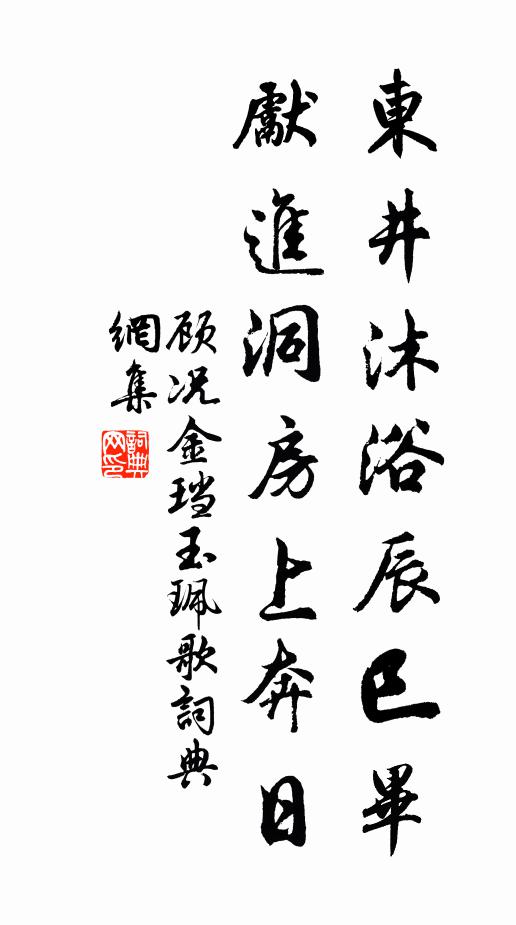 東井沐浴辰巳畢
獻進洞房上奔日
顾况金珰玉珮歌詞典
網集
詞典
网印